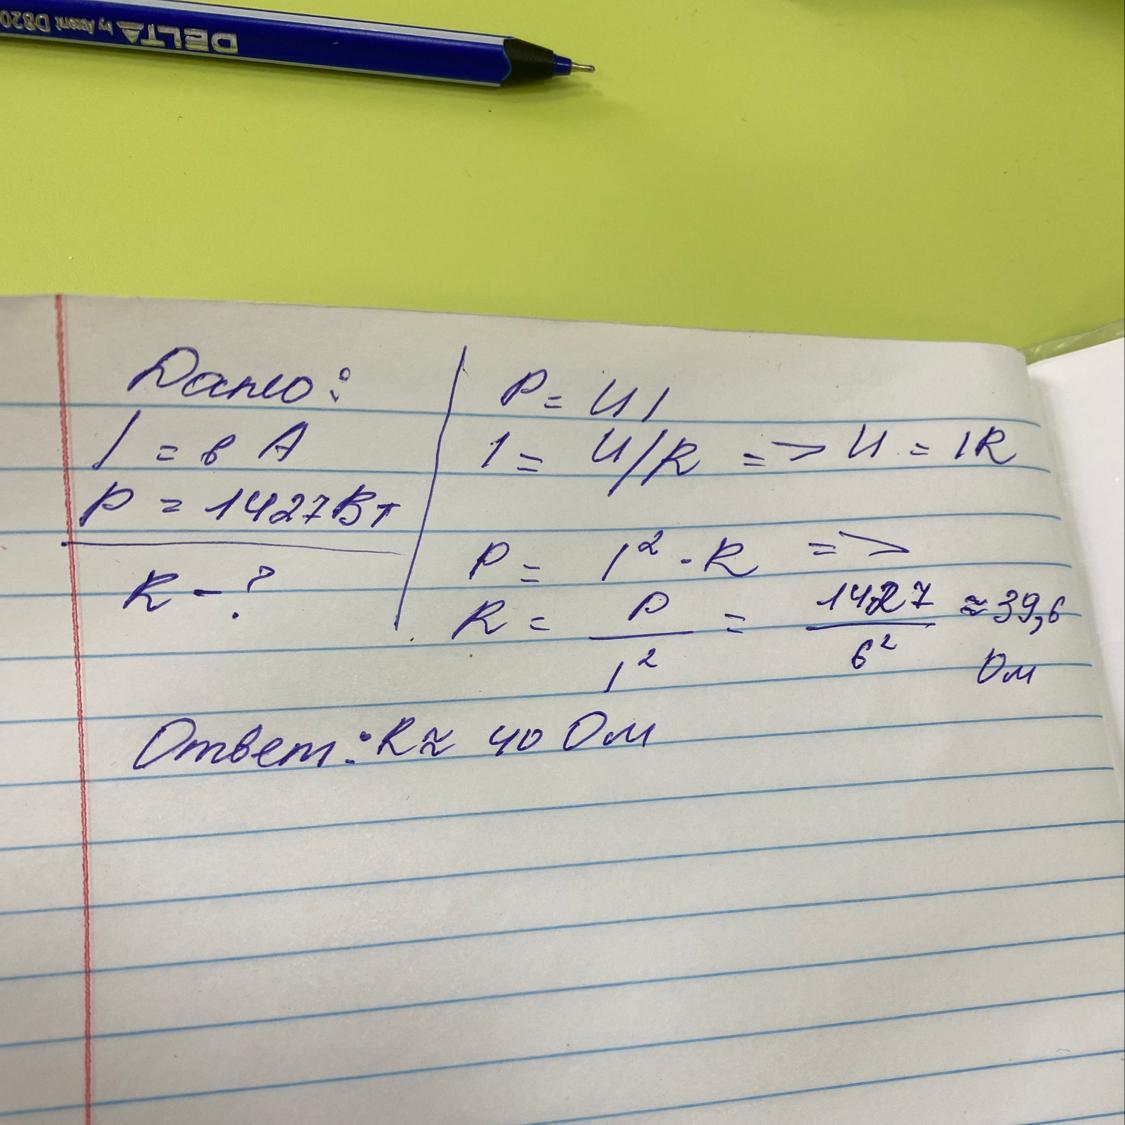 DELTA by Axent DB20
Дано:
I = 6 А
P = 1427Вт
R - ?
P = UI
I = U/R => U = IR
P = I² · R =>
R = P/I² = 1427/6² ≈ 39,6
Ом
Ответ: R ≈ 40 Ом